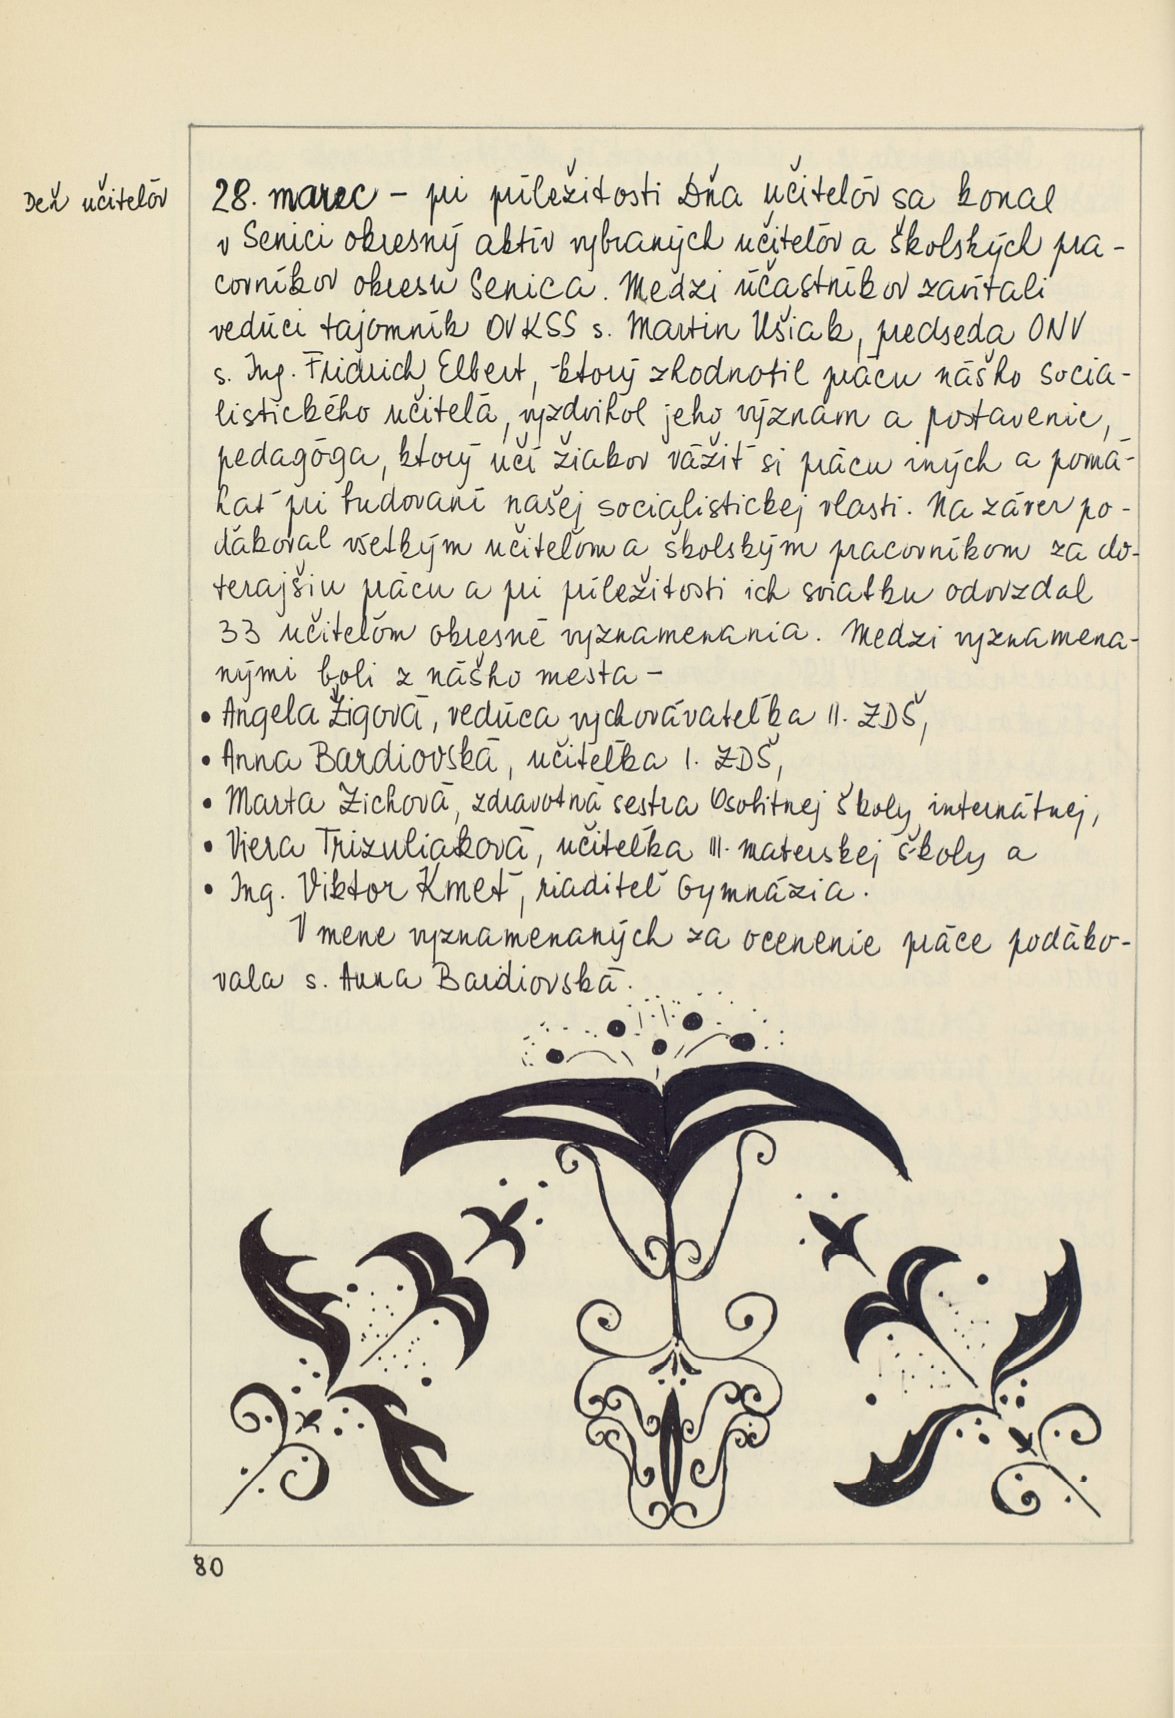 Deň učitelov
28. marec – pri príležitosti Dňa učitelov sa konal
v Senici okresný aktív vybraných učitelov a školských pra-
covníkov okresu Senica. Medzi účastníkov zavítali
vedúci tajomník OV KSS s. Martin Ušiak, predseda ONV
s. Ing. Fridrich Elbert, ktorý zhodnotil prácu nášho socia-
listického učitela, vyzdvihol jeho význam a postavenie,
pedagóga, ktorý učí žiakov vážiť si prácu iných a pomá-
hať pri budovaní našej socialistickej vlasti. Na záver po-
ďakoval všetkým učitelom a školským pracovníkom za do-
terajšiu prácu a pri príležitosti ich sviatku odovzdal
33 učitelom okresné vyznamenania. Medzi vyznamena-
nými boli z nášho mesta –
• Angela Žigová, vedúca vychovávateľka II. ZDŠ,
• Anna Bardiovská, učiteľka I. ZDŠ,
• Marta Zichová, zdravotná sestra Osobitnej školy internátnej,
• Viera Trizuliaková, učiteľka III. materskej školy a
• Ing. Viktor Kmeť, riaditeľ Gymnázia.
V mene vyznamenaných za ocenenie práce poďako-
vala s. Anna Bardiovská.
80